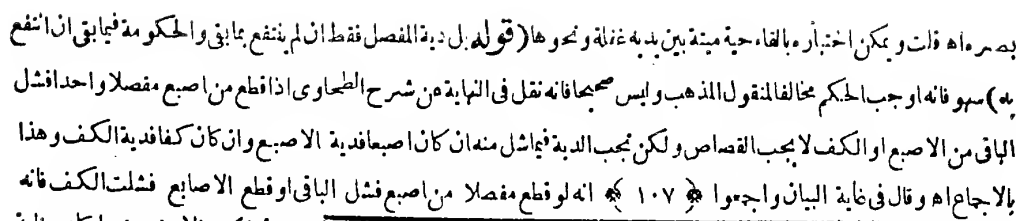 بصره اه قلت ويمكن اختباره بالقاء حية ميتة بين يديه غفلة ونحوها (قوله بل دية المفصل فقط ان لم ينتفع بما بقى والحكومة فيما بقى ان انتفع
به) سهو فانه اوجب الحكم مخالفا لمنقول المذهب وليس صحيحا فانه نقل فى النهاية من شرح الطحاوى اذا قطع من اصبع مفصلا واحدا فشل
الباقى من الاصبع او الكف لا يجب القصاص ولكن تجب الدية فيما شل منه ان كان اصبعا فدية الاصبع وان كان كفا فدية الكف وهذا
بالاجماع اه وقال فى غاية البيان واجمعوا ﴿ ١٠٧ ﴾ انه لو قطع مفصلا من اصبع فشل الباقى او قطع الاصابع فشلت الكف فانه